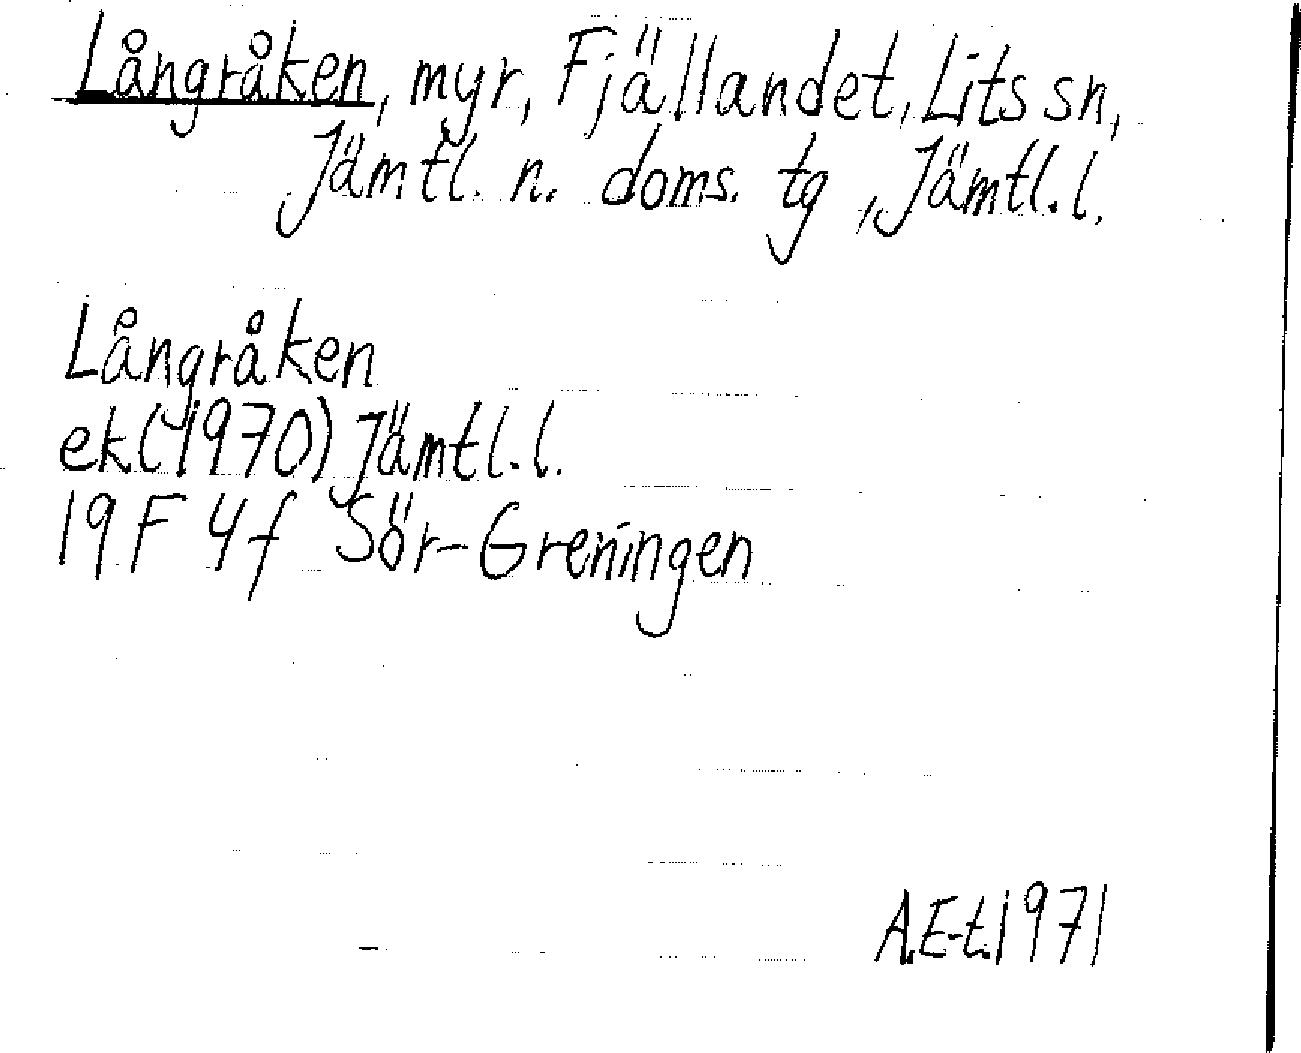 Långråken, myr, Fjällandet, Lits sn,
Jämtl. n. doms. tg, Jämtl. l.
Långråken
ek (1970) Jämtl. l.
19 F 4 f Sör-Greningen
A.E-t. 1971